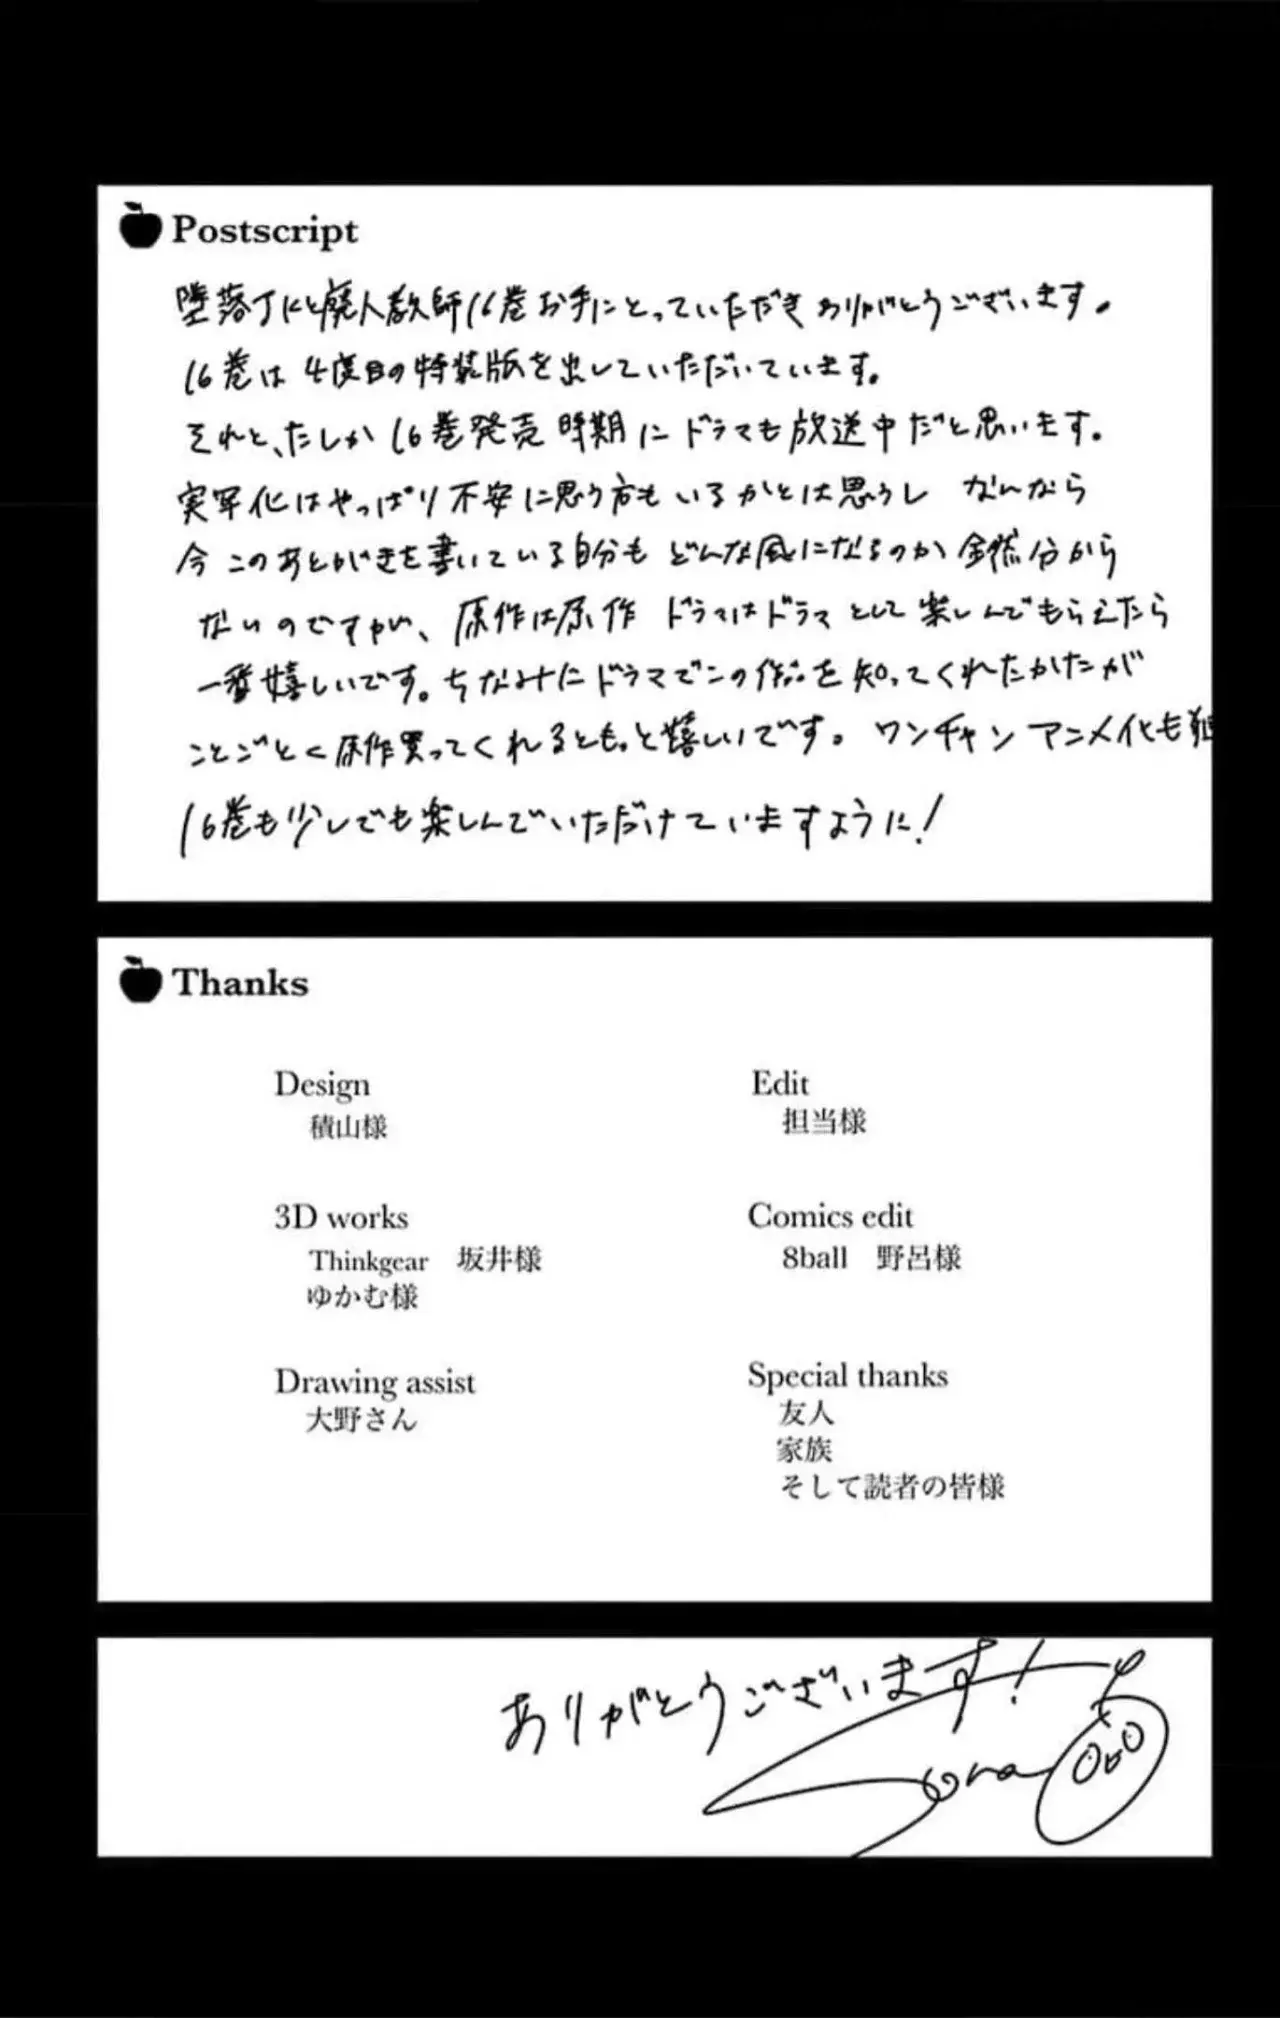 Postscript
墜落JKと廃人教師16巻お手にとっていただきありがとうございます。
16巻は4度目の特装版を出していただいています。
それと、たしか16巻発売時期にドラマも放送中だと思います。
実写化はやっぱり不安に思う方もいるかとは思うし なんなら
今このあとがきを書いている自分も どんな風になるのか全然分から
ないのですが、原作は原作 ドラマはドラマとして楽しんでもらえたら
一番嬉しいです。ちなみにドラマでこの作品を知ってくれたかたが
ことごとく原作買ってくれるともっと嬉しいです。ワンチャン アニメ化も
16巻も少しでも楽しんでいただけていますように!
Thanks
Design
積山様
Edit
担当様
3D works
Thinkgear 坂井様
ゆかむ様
Comics edit
8ball 野呂様
Drawing assist
大野さん
Special thanks
友人
家族
そして読者の皆様
ありがとうございます!
Sora